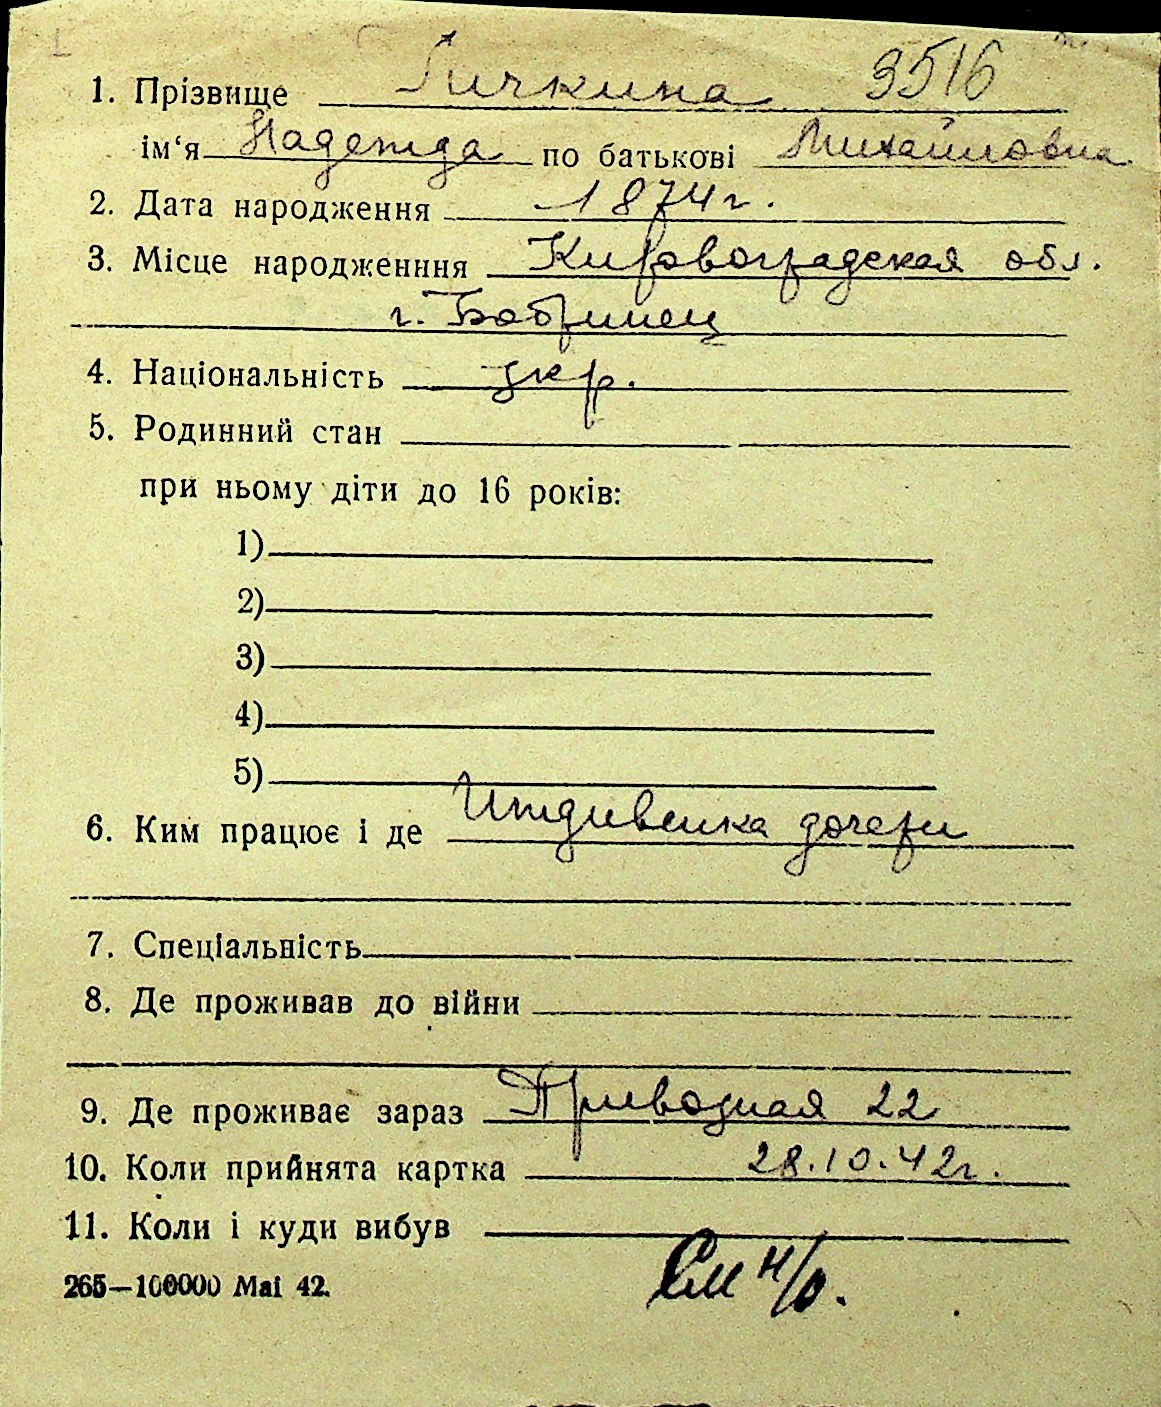 1. Прізвище Гичкина 9516
ім‘я Надежда по батькові Михайловна
2. Дата народження 1874 г.
3. Місце народженння Кировоградская обл.
г. Бобринец
4. Національність укр.
5. Родинний стан
при ньому діти до 16 років:
1)
2)
3)
4)
5)
6. Ким працює і де Иждивенка дочери
7. Спеціальність
8. Де проживав до війни
9. Де проживає зараз Приводная 22
10. Коли прийнята картка 28.10.42г.
11. Коли і куди вибув
265—100000 Mai 42.
См н/о.